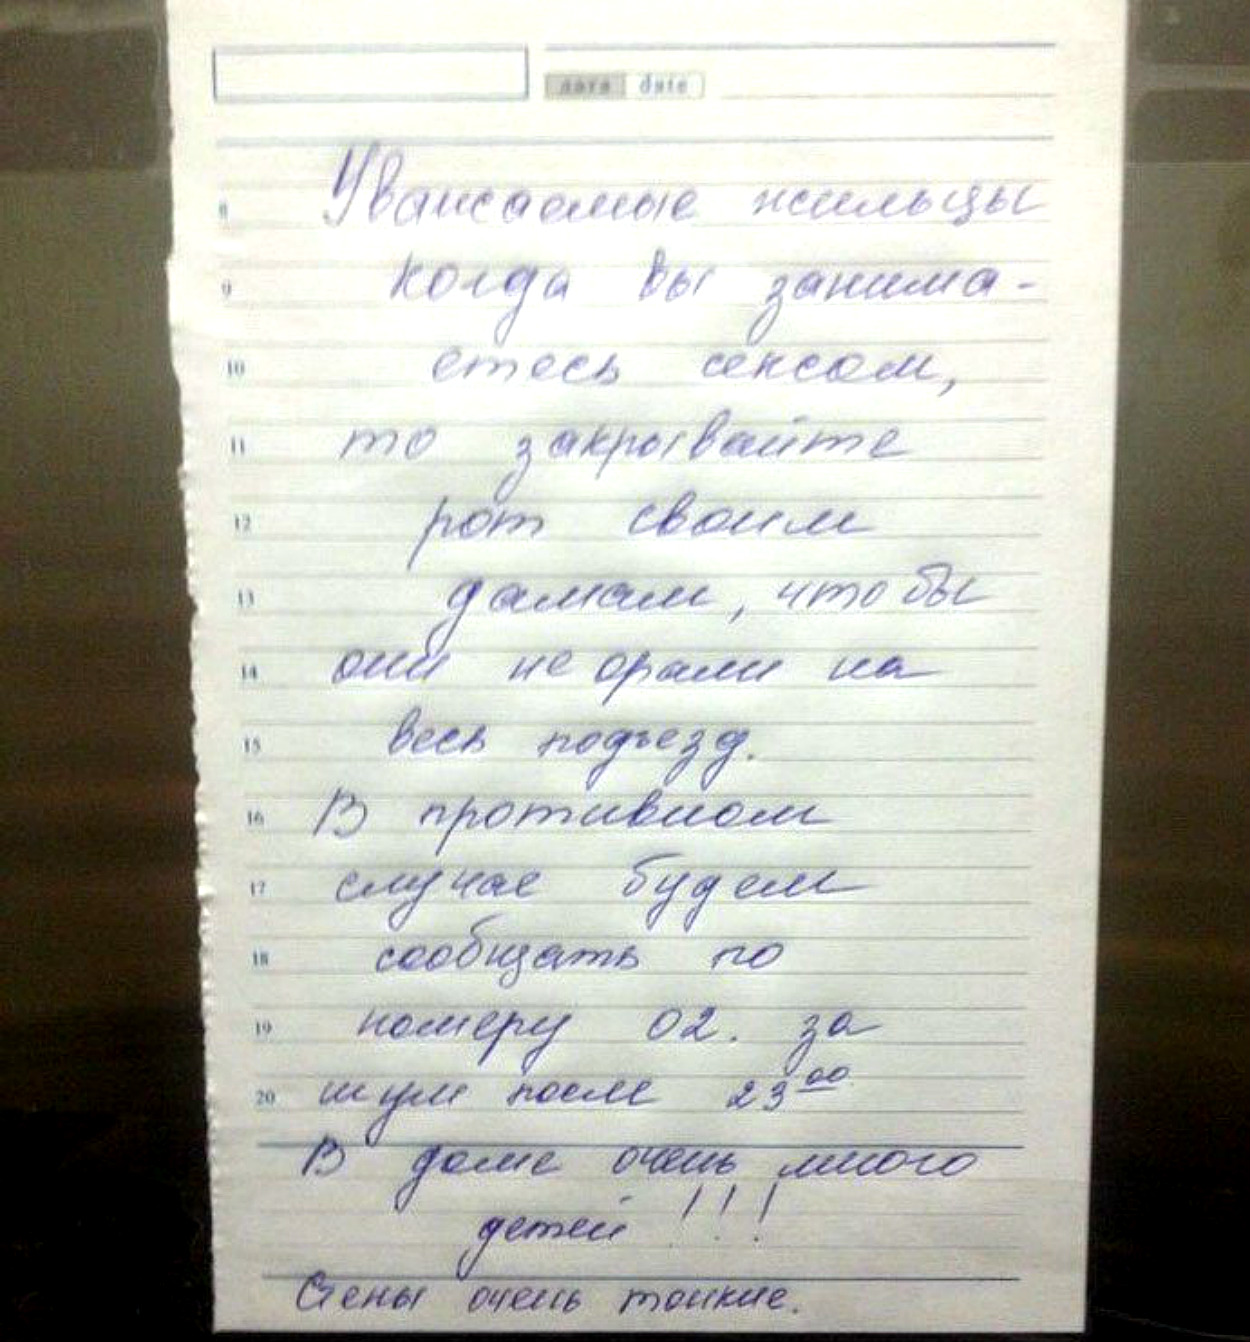 дата date
8 Уважаемые жильцы
9 когда вы занима-
10 етесь сексом,
11 то закрывайте
12 рот своим
13 дамам, чтобы
14 они не орали на
15 весь подъезд.
16 В противном
17 случае будем
18 сообщать по
19 номеру 02. за
20 шум после 23 00
В доме очень много
детей !!!
Стены очень тонкие.